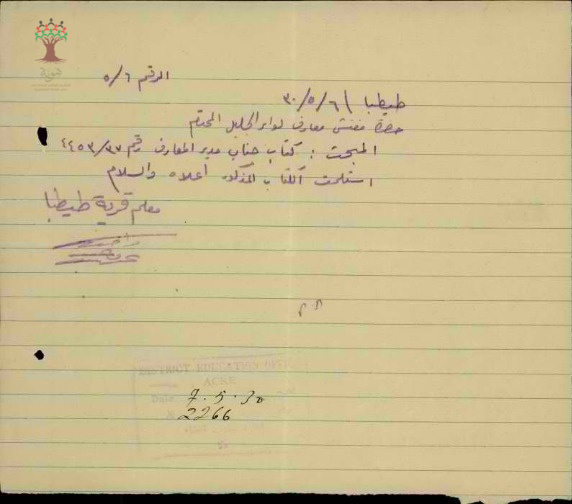 الرقم ٥/٦
طيطبا ٣٠/٥/٦
حضرة مفتش معارف لواء الجليل المحترم
المبحث : كتاب جناب مدير المعارف رقم ٤٤٥٣/٣٧
استلمت الكتاب المذكور أعلاه والسلام
معلم قرية طيطبا
DISTRICT EDUCATION OFFICE
ACRE
7.5.30
2266